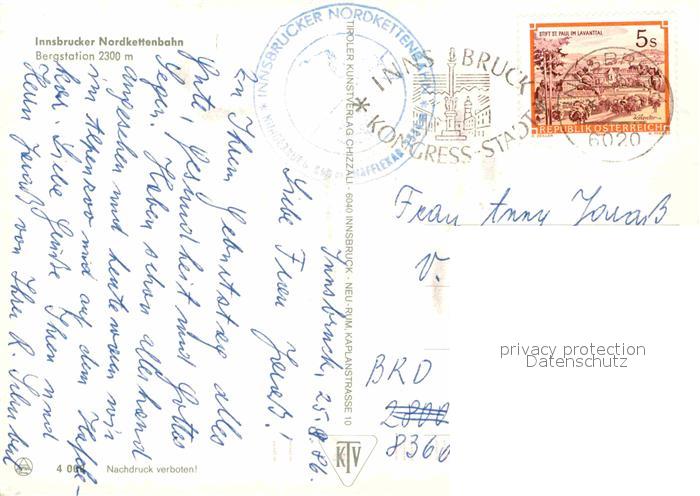 Innsbrucker Nordkettenbahn
Bergstation 2300 m
INNSBRUCKER NORDKETTENBAHN
INNSBRUCK
KONGRESS-STADT
6020
STIFT ST. PAUL IM LAVANTTAL
5 S
REPUBLIK ÖSTERREICH
TIROLER KUNSTVERLAG CHIZZALI · 6040 INNSBRUCK · NEU-RUM, KAPLANSTRASSE 10
Innsbruck, 25.8.86.
Liebe Frau Jauß!
Zu Ihrem Geburtstag alles
Gute, Gesundheit und Gottes
Segen. Haben schon allerhand
angesehen und heute waren wir
im Alpenzoo und auf dem Hafele-
kar. Liebe Grüße Ihnen und
Herrn Jauß von Ihrer R.
Frau Anny Jauß
V.
BRD
2800
8360
privacy protection
Datenschutz
KTV
Nachdruck verboten!